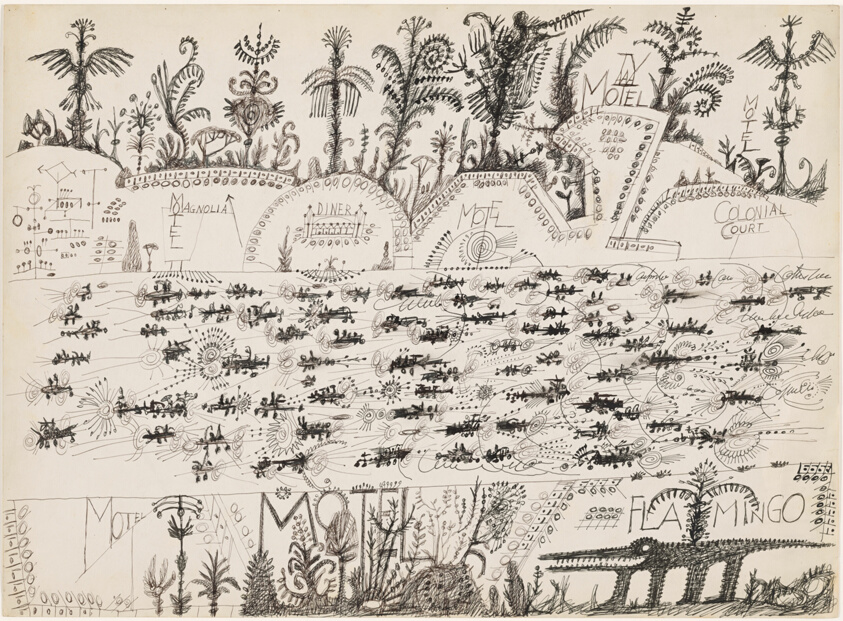 TV
MOTEL
MOTEL
MOTEL
MAGNOLIA
DINER
MOTEL
COLONIAL
COURT
MOTEL
MOTEL
FLAMINGO